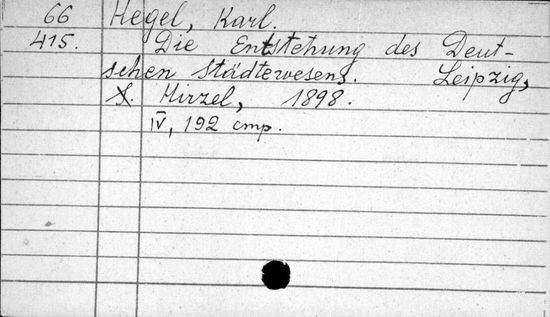 66 Hegel, Karl.
415. Die Entstehung des Deut-
schen Städtewesens. Leipzig,
S. Hirzel, 1898.
IV, 192 cmp.